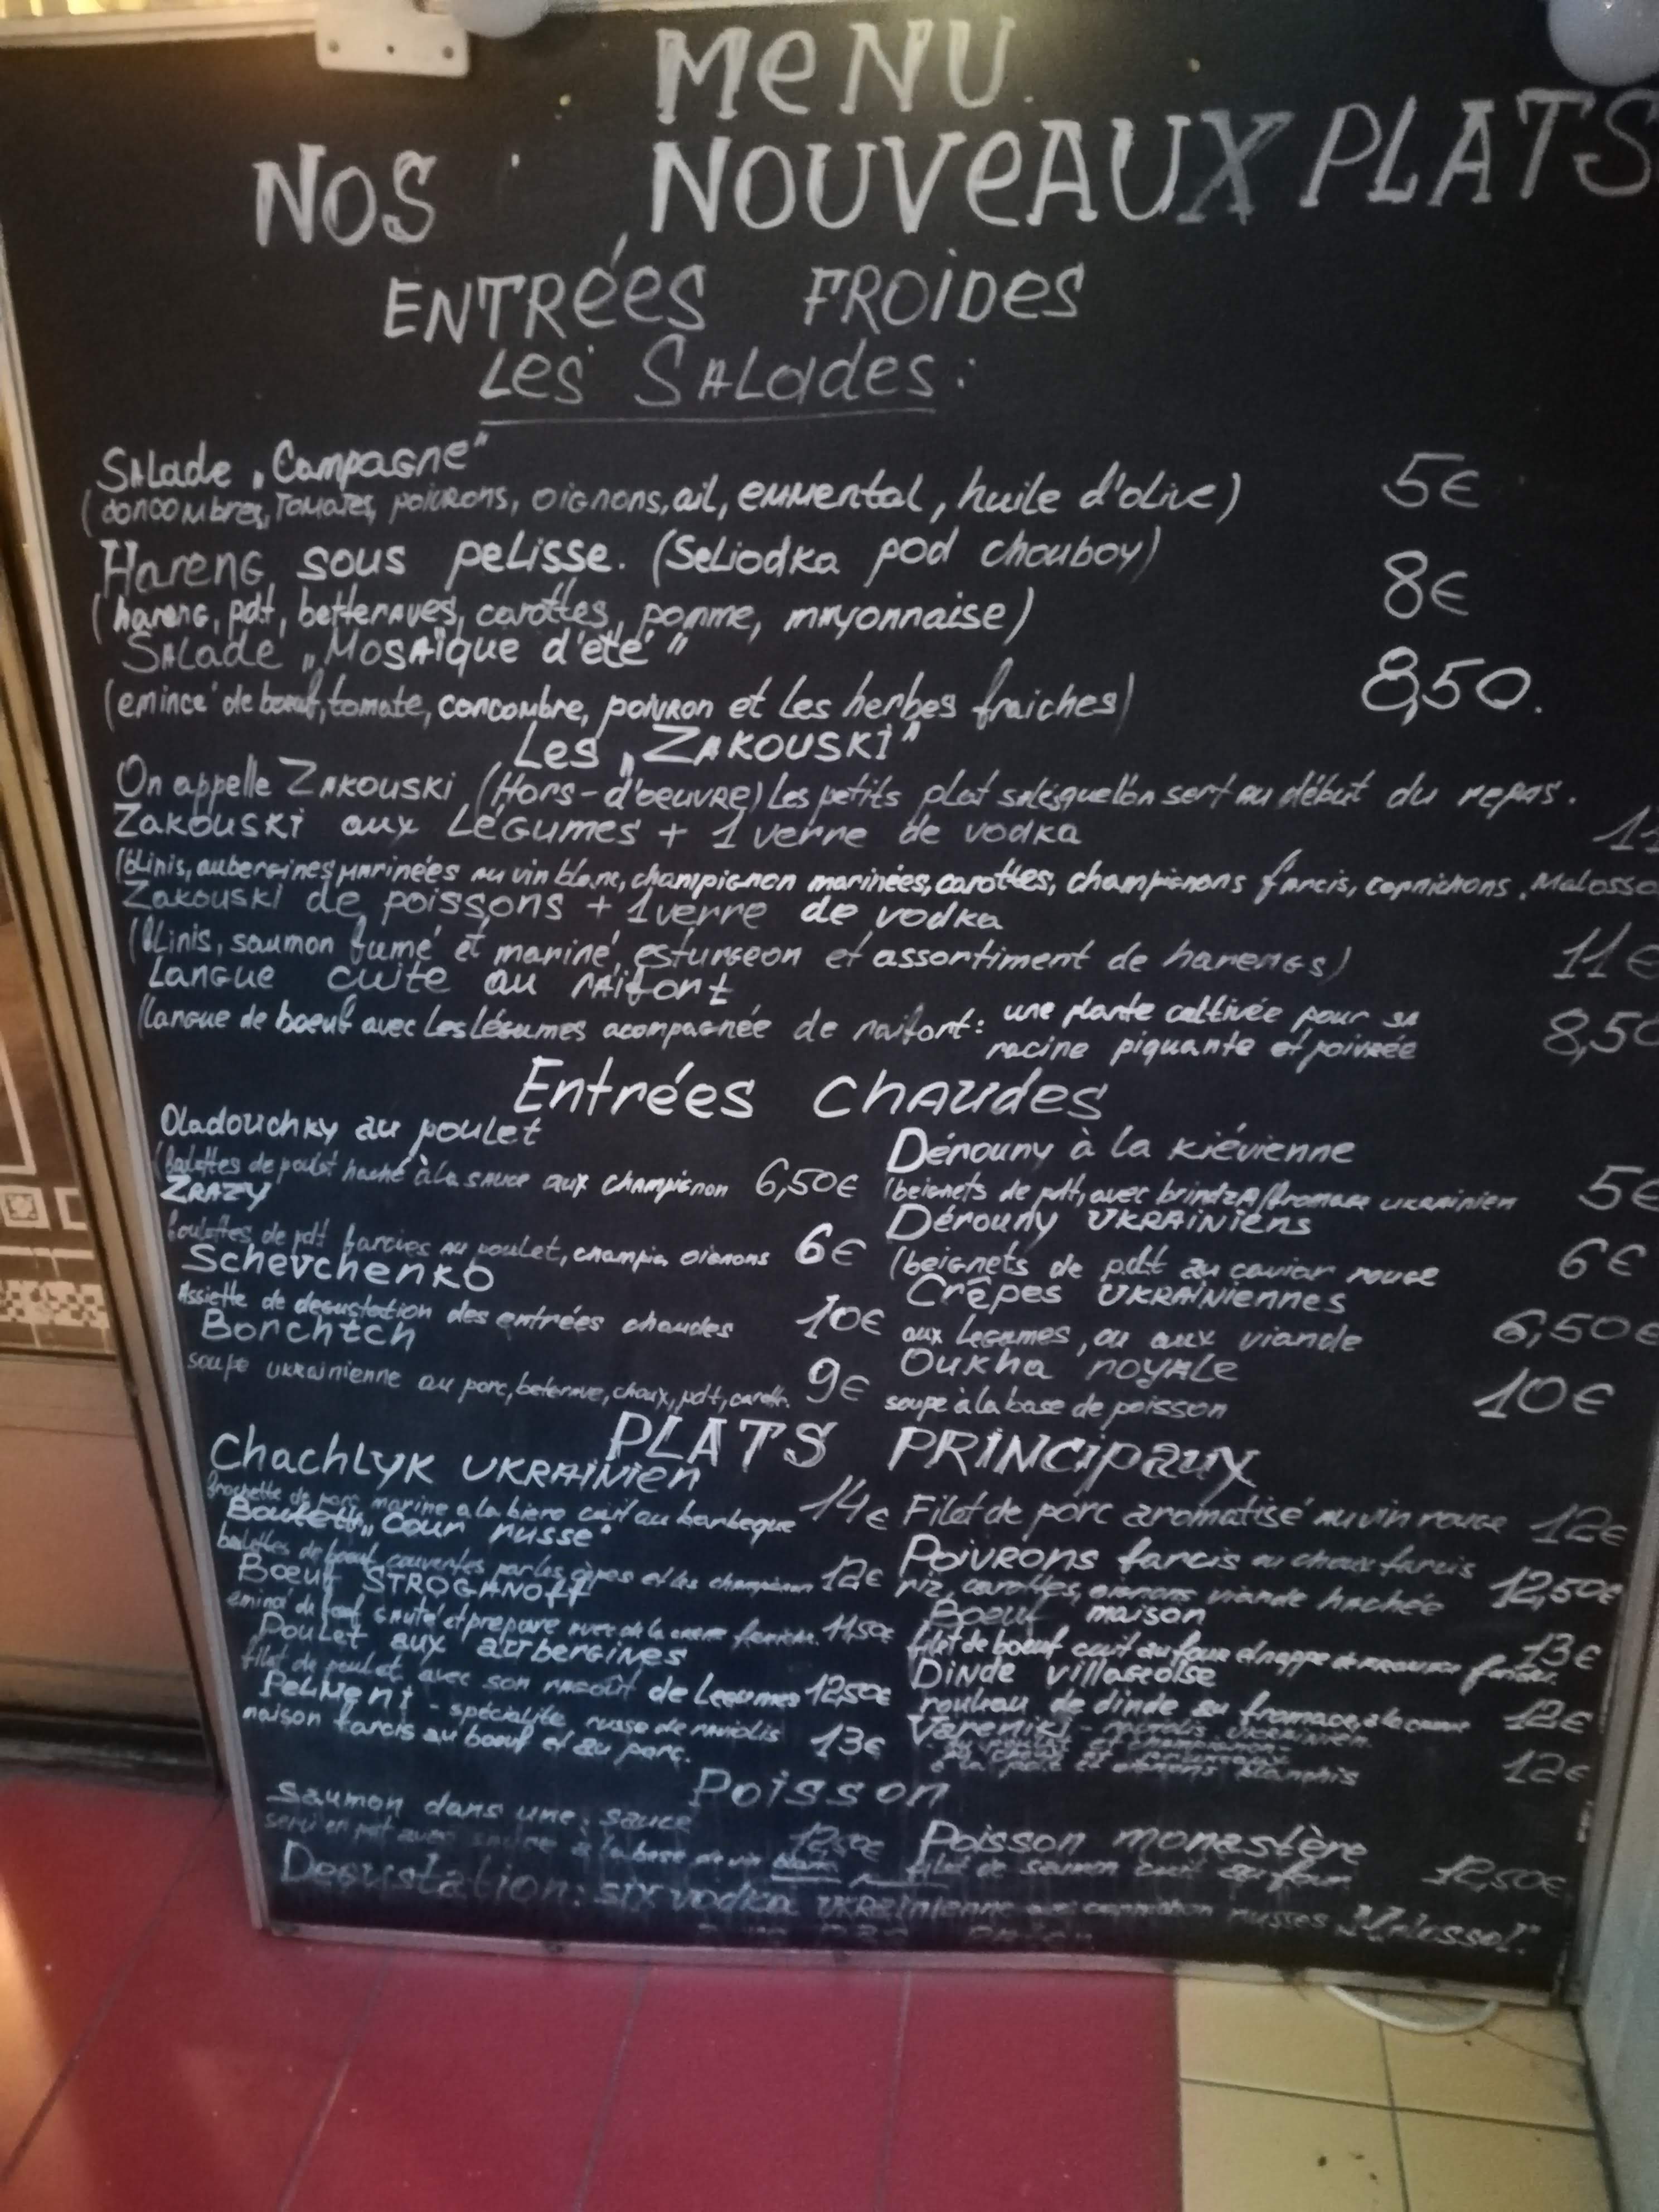 MENU
NOS NOUVEAUX PLATS
ENTRÉES FROIDES
Les Salades :
Salade „Campagne"
(concombres, Tomates, poivrons, oignons, ail, emmental, huile d'olive) 5€
Hareng sous pelisse. (Seliodka pod chouboy)
(hareng, pdt, betteraves, carottes, pomme, mayonnaise) 8€
Salade „Mosaïque d'été"
(émincé de boeuf, tomate, concombre, poivron et les herbes fraiches) 8,50.
Les „Zakouski"
On appelle Zakouski (Hors-d'oeuvre) les petits plat salés que l'on sert au début du repas.
Zakouski aux Légumes + 1 verre de vodka 11
(blinis, aubergines marinées au vin blanc, champignon marinées, carottes, champignons farcis, cornichons, Malosso
Zakouski de poissons + 1 verre de vodka
(blinis, saumon fumé et mariné, esturgeon et assortiment de harengs) 11€
Langue cuite au raifort
(langue de boeuf avec les légumes acompagnée de raifort: une plante cultivée pour sa 8,50
racine piquante et poivrée
Entrées chaudes
Oladouchky au poulet
(boulettes de poulet haché à la sauce aux champignon 6,50€
Zrazy
boulettes de pdt farcies au poulet, champig, oignons 6€
Schevchenko
Assiette de degustation des entrées chaudes 10€
Borchtch
soupe ukrainienne au porc, beterave, choux, pdt, carott. 9€
Dérouny à la kiévienne
(beignets de pdt, avec brindza/fromage ukrainien 5€
Dérouny ukrainiens
(beignets de pdt au caviar rouge 6€
Crêpes ukrainiennes
aux legumes, ou aux viande 6,50€
Oukha royale
soupe à la base de poisson 10€
PLATS PRINCIPAUX
Chachlyk ukrainien
brochette de porc marine a la biere cuit au barbeque 14€
Boulette „Cour russe"
boulettes de boeuf couvertes par les cèpes et les champignon 12€
Boeuf STROGANOFF
émincé de boeuf sauté et preparé avec de la creme 11,50€
Poulet aux aubergines
filet de poulet avec son ragoût de legumes 12,50€
Pelmeni - spécialité russe de raviolis
maison farcis au boeuf et au porc. 13€
Filet de porc aromatisé au vin rouge 12€
Poivrons farcis ou choux farcis
riz, carottes, oignons viande hachée 12,50€
Boeuf maison
filet de boeuf cuit au four 13€
Dinde villageoise
rouleau de dinde au fromage, a la creme 12€
Vareniki - raviolis ukrainien
au poulet et champignons
à la pdt et oignons blanchis 12€
Poisson
Saumon dans une sauce
servi en pdt avec sauce à la base de vin blanc 12,50€
Poisson monastère
filet de saumon cuit au four 12,50€
Degustation: six vodka ukrainienne russes „Malossol"